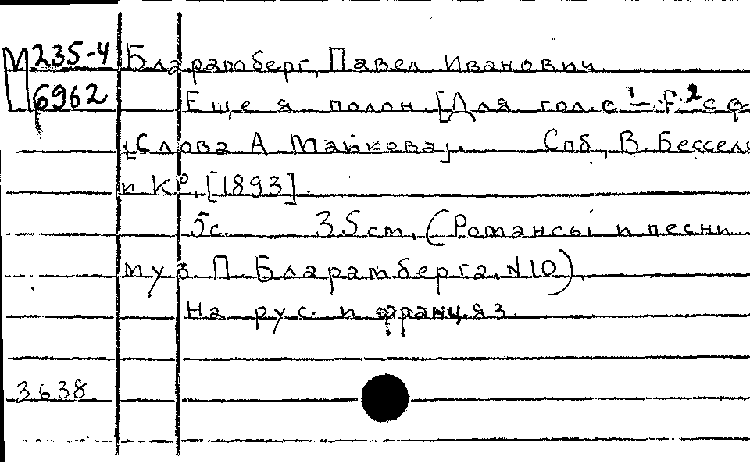 М 235-4 Бларамберг, Павел Иванович.
6962 Еще я полон. [Для гол. с ф
[Слова А Майкова]. Спб, В. Бессель
и К⁰, [1893].
5с. 35 см. (Романсы и песни
муз. П. Бларамберга. №10).
На рус. и франц. яз.
3638